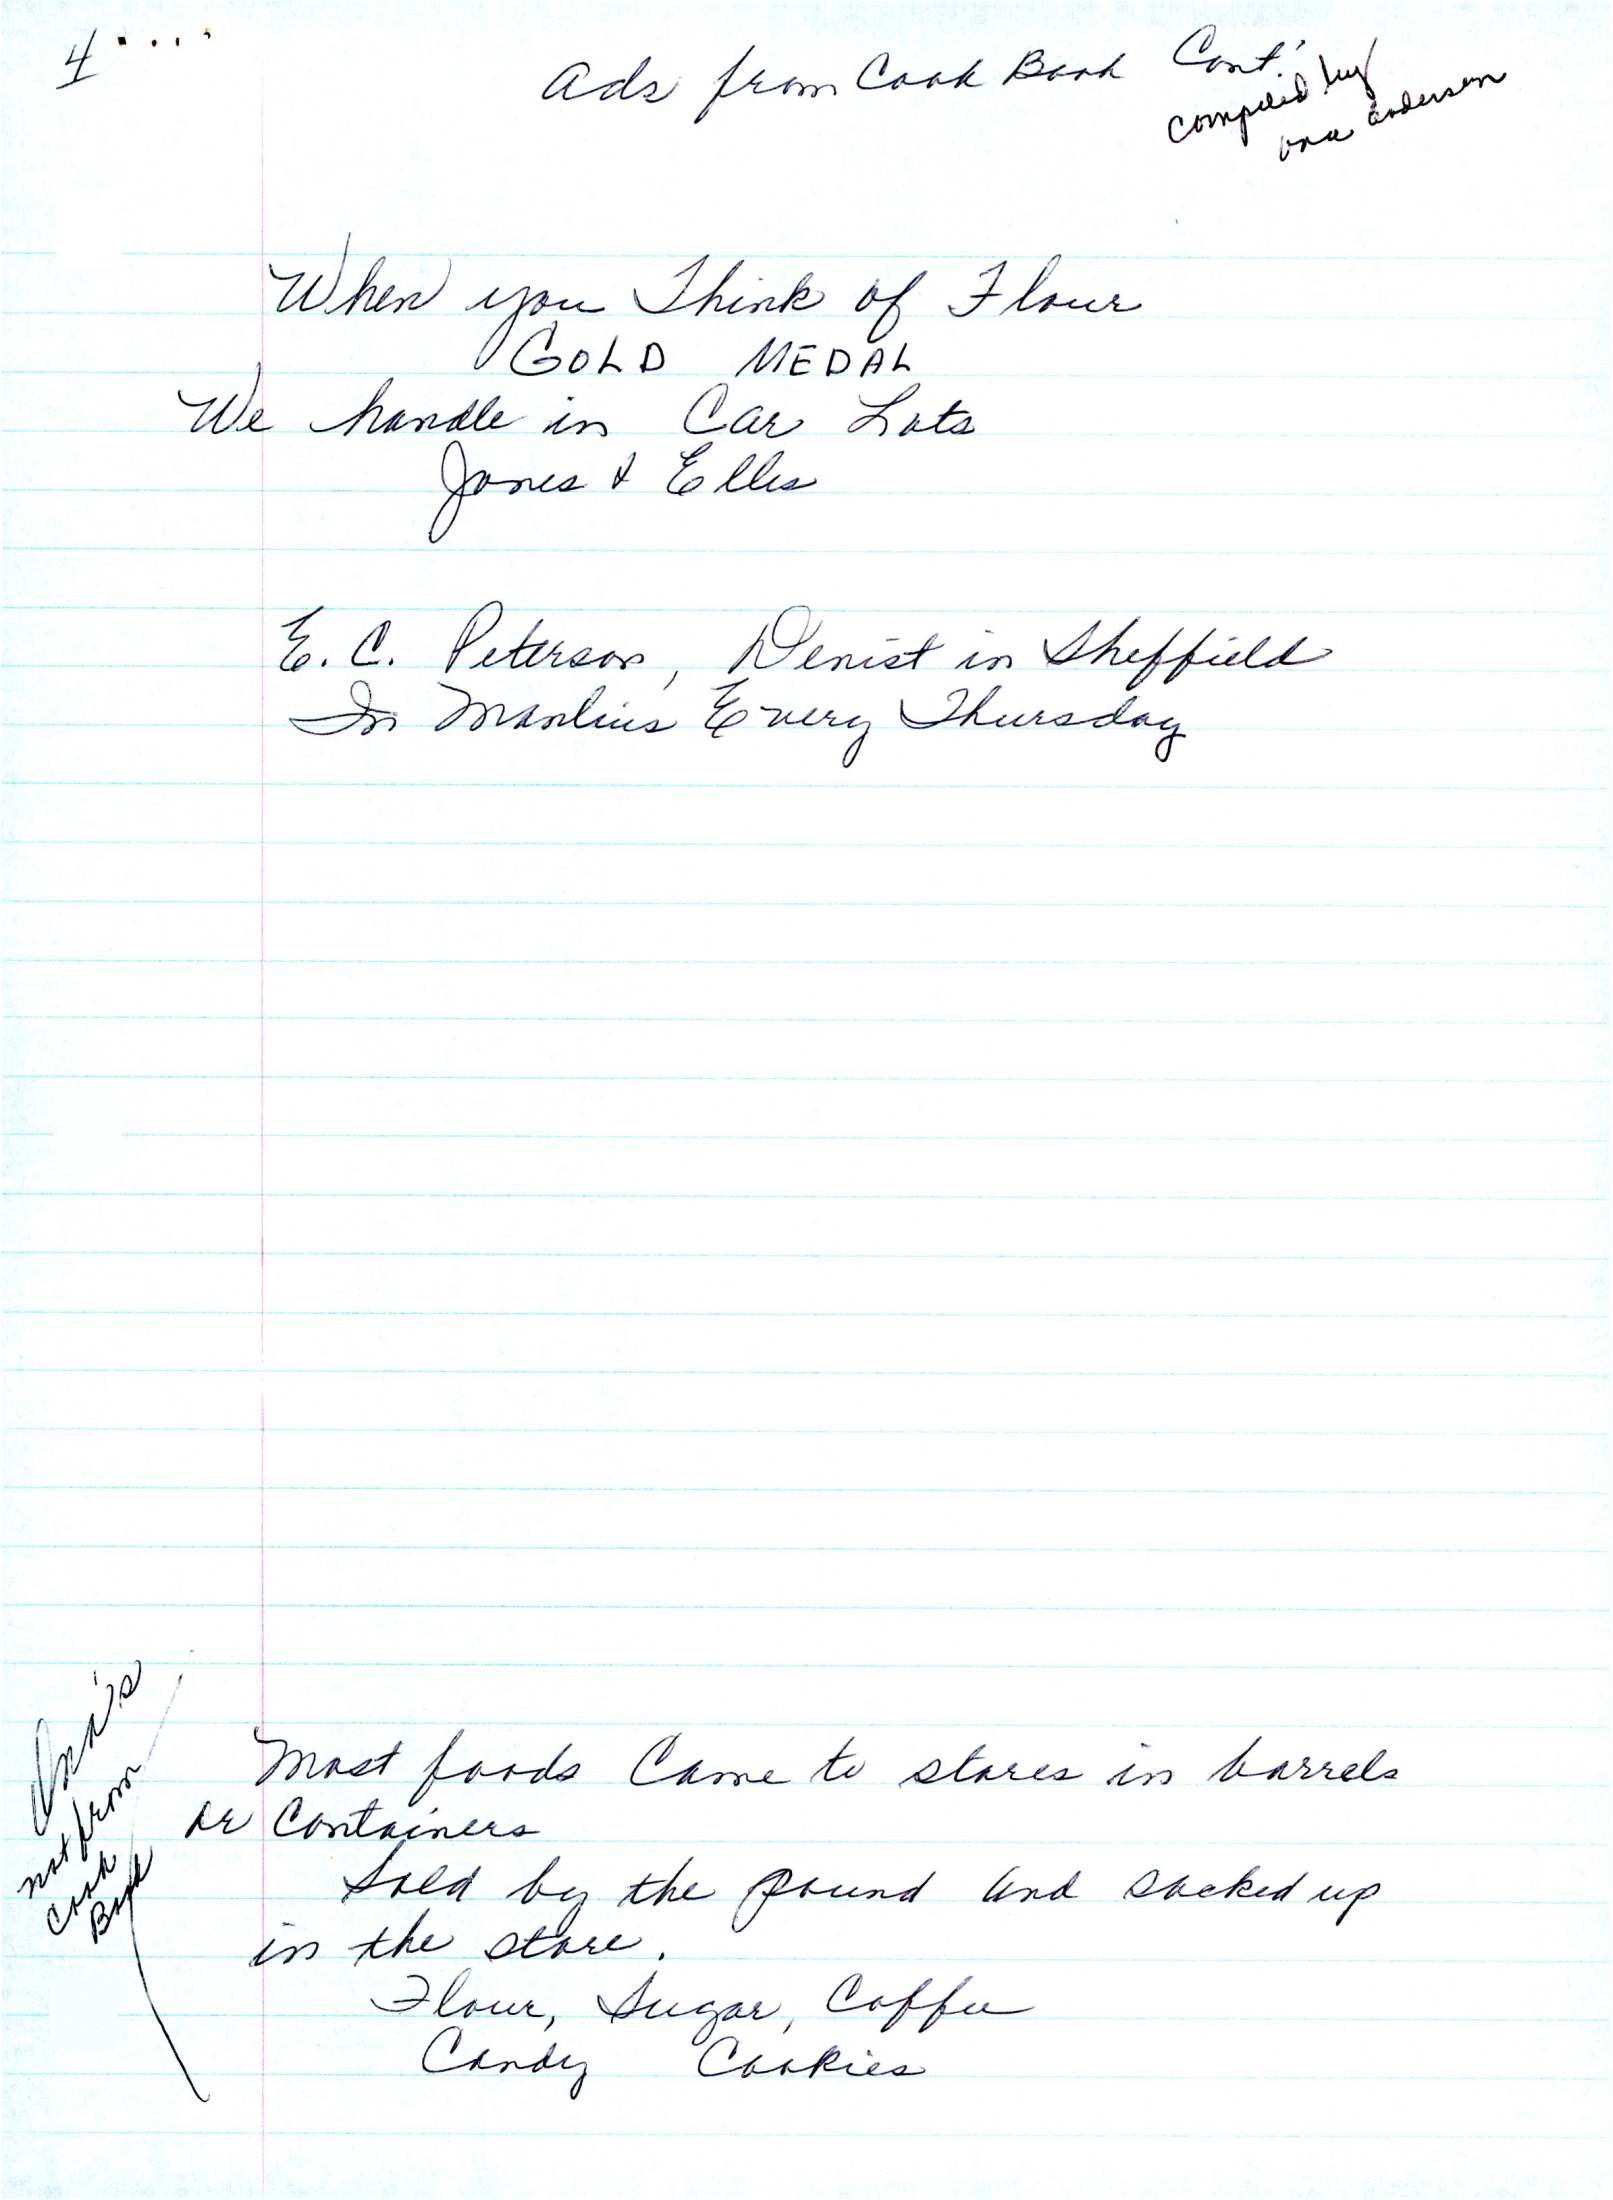 4
Ads from Cook Book Cont.'
compiled by
Ona Anderson
When you Think of Flour
GOLD MEDAL
We handle in Car Lots
Jones & Ellis
E. C. Peterson, Denist in Sheffield
In Manlius Every Thursday
not from
Cook
Book
Most foods Came to stores in barrels
or Containers
Sold by the pound and sacked up
in the store.
Flour, Sugar, Coffee
Candy Cookies